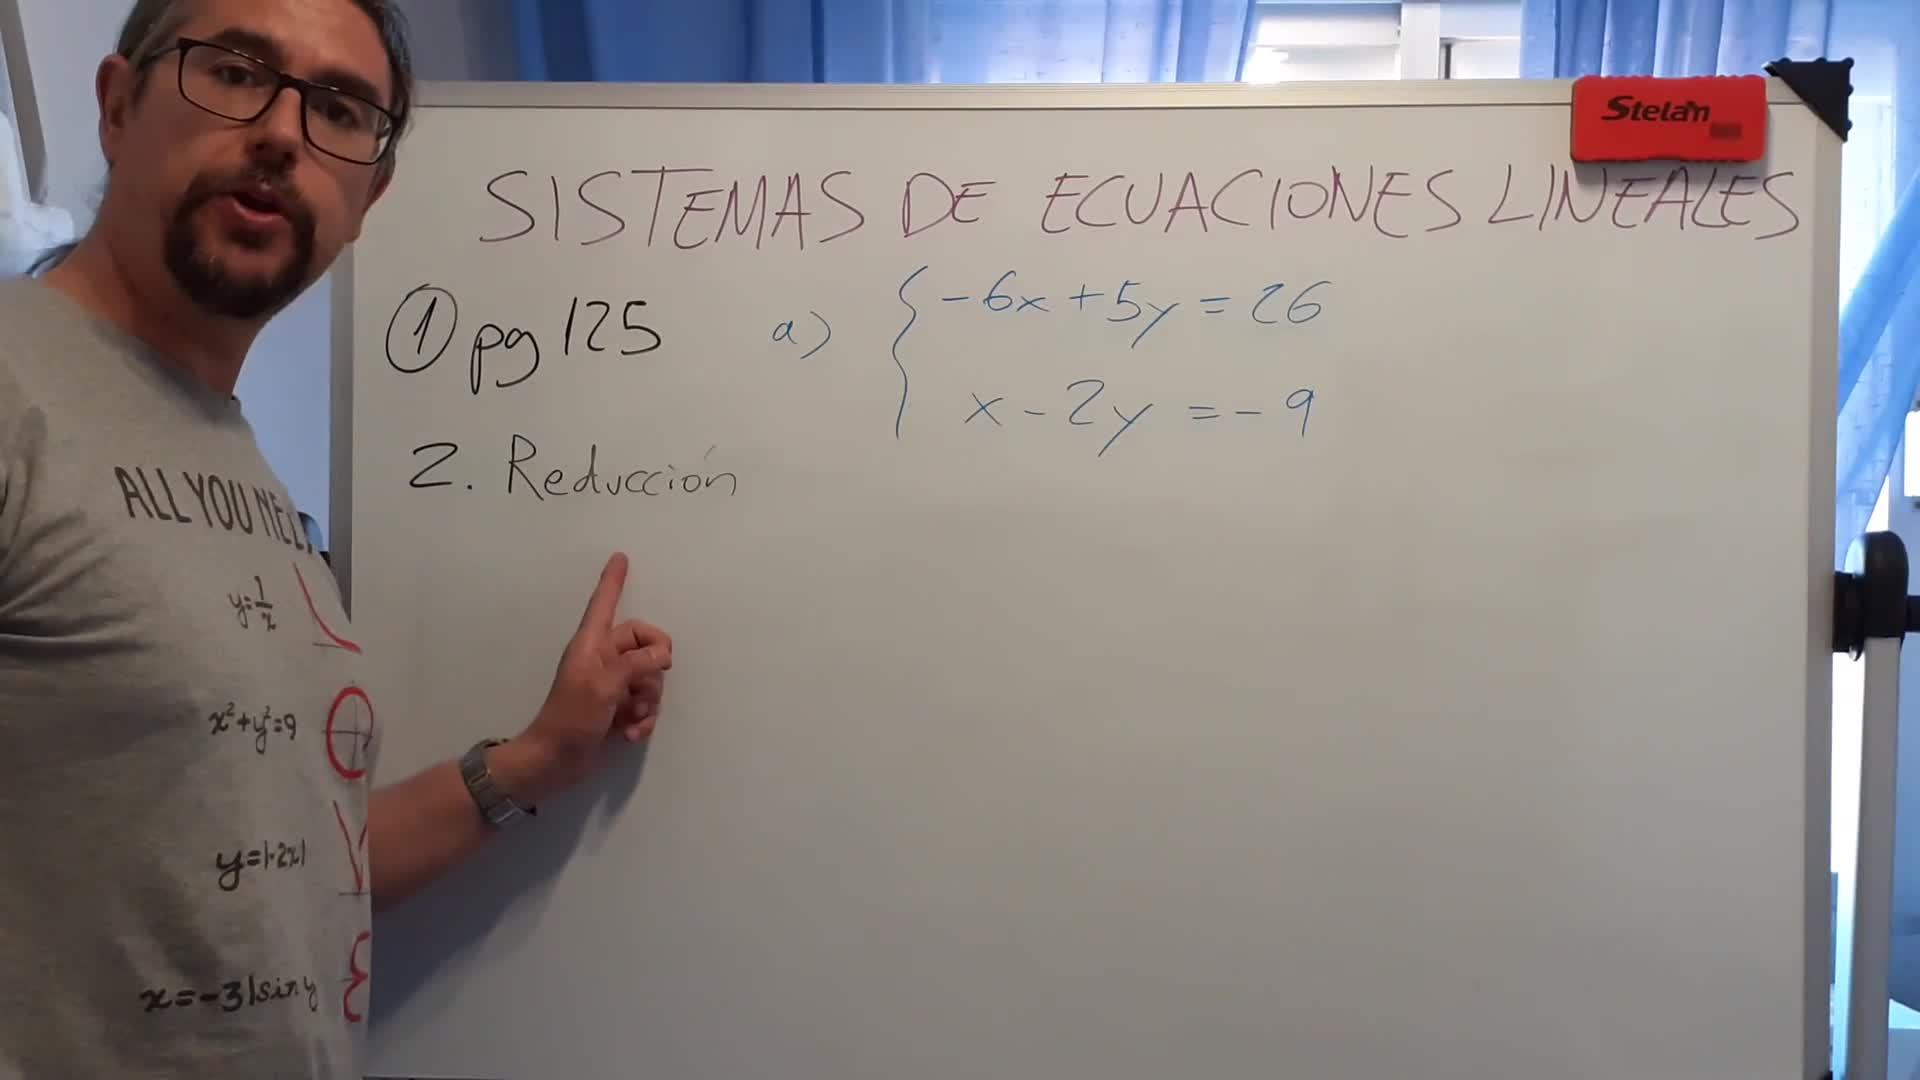 Stelam
SISTEMAS DE ECUACIONES LINEALES
① pg 125
a) { -6x + 5y = 26
x - 2y = -9
2. Reducción
ALL YOU NEE
y=1/x
x²+y²=9
y=|-2x|
x=-3|sin y